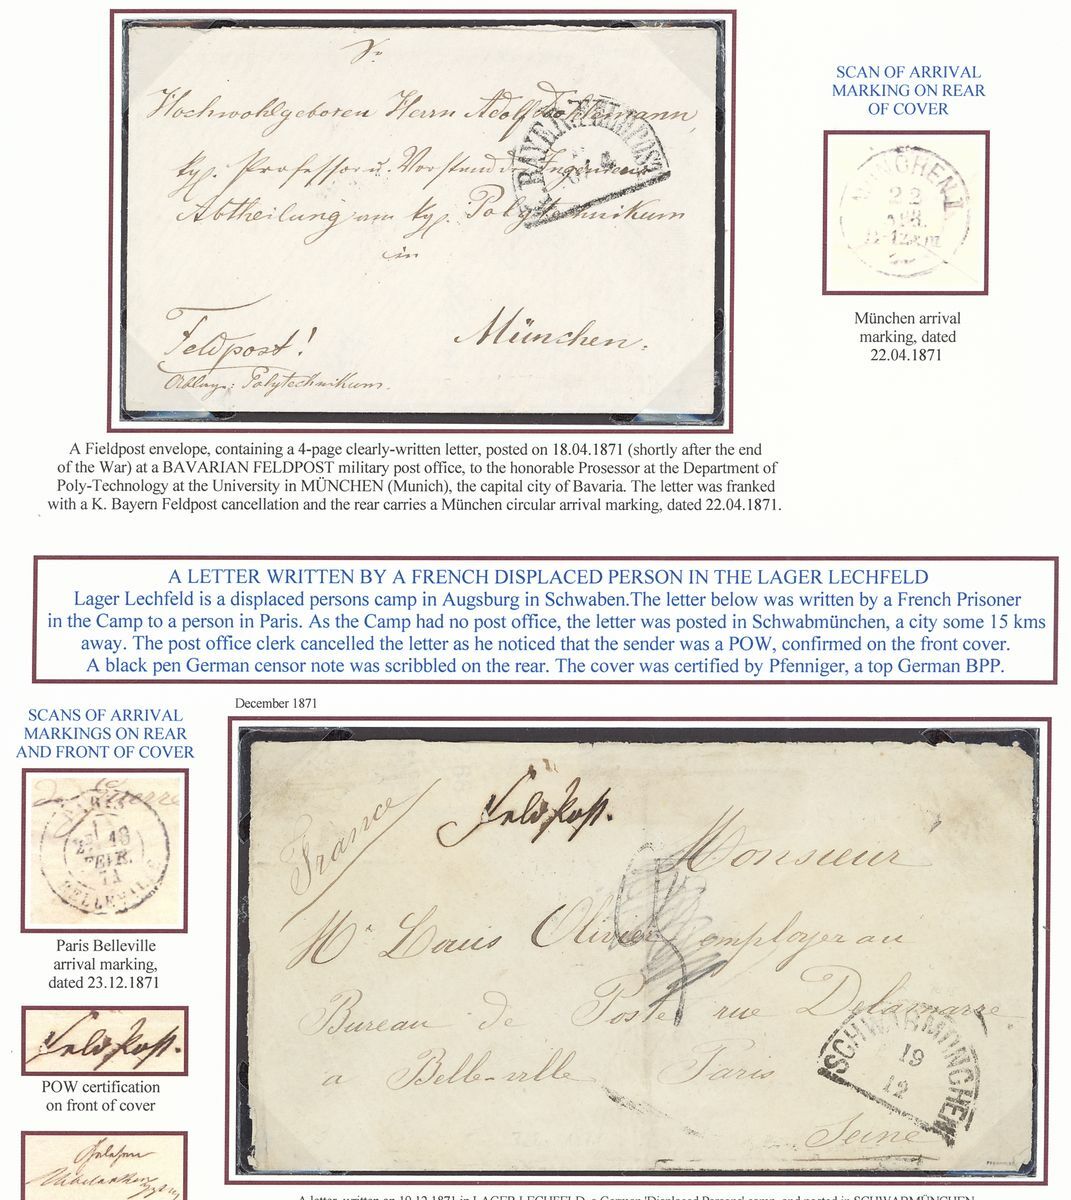 Sr
Hochwohlgeboren Herrn Adolf
kgl. Professor u. Vorstand der Ingenieur
Abtheilung am kgl. Polytechnikum
in
München.
Feldpost!
Polytechnikum.
K. BAYER. FELDPOST
SCAN OF ARRIVAL
MARKING ON REAR
OF COVER
MÜNCHEN I
22
APR.
München arrival
marking, dated
22.04.1871
A Fieldpost envelope, containing a 4-page clearly-written letter, posted on 18.04.1871 (shortly after the end
of the War) at a BAVARIAN FELDPOST military post office, to the honorable Prosessor at the Department of
Poly-Technology at the University in MÜNCHEN (Munich), the capital city of Bavaria. The letter was franked
with a K. Bayern Feldpost cancellation and the rear carries a München circular arrival marking, dated 22.04.1871.
A LETTER WRITTEN BY A FRENCH DISPLACED PERSON IN THE LAGER LECHFELD
Lager Lechfeld is a displaced persons camp in Augsburg in Schwaben.The letter below was written by a French Prisoner
in the Camp to a person in Paris. As the Camp had no post office, the letter was posted in Schwabmünchen, a city some 15 kms
away. The post office clerk cancelled the letter as he noticed that the sender was a POW, confirmed on the front cover.
A black pen German censor note was scribbled on the rear. The cover was certified by Pfenniger, a top German BPP.
December 1871
SCANS OF ARRIVAL
MARKINGS ON REAR
AND FRONT OF COVER
PARIS
BELLEVILLE
Paris Belleville
arrival marking,
dated 23.12.1871
Feldpost.
POW certification
on front of cover
Gelesen
France
Feldpost.
Monsieur
Mr Louis Olivier employer au
Bureau de Poste rue Delamarre
a Belle-ville Paris
Seine
SCHWABMÜNCHEN
19
12
A letter, written on 19.12.1871 in LAGER LECHFELD, a German 'Displaced Persons' camp, and posted in SCHWABMÜNCHEN